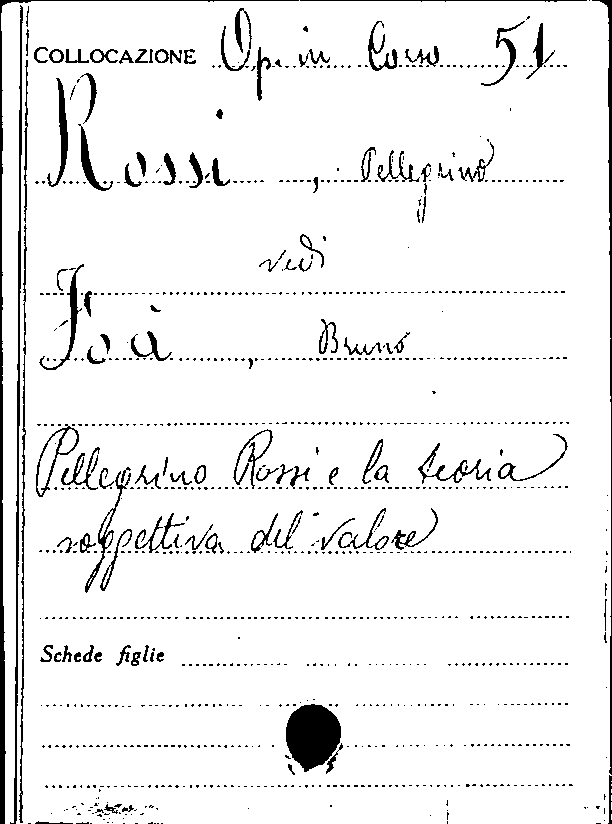 COLLOCAZIONE Op. in Corso 51
Rossi, Pellegrino
vedi
Foà, Bruno
Pellegrino Rossi e la teoria
soggettiva del valore
Schede figlie